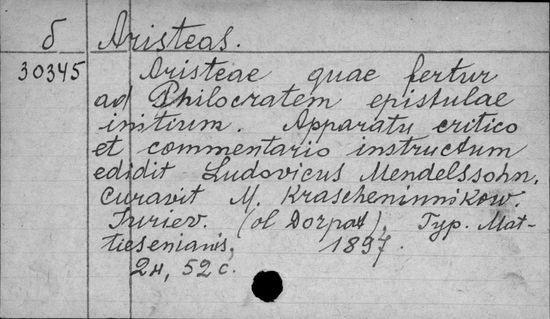 б Aristeas.
30345 Aristeae quae fertur
ad Philocratem epistulae
initium. Apparatu critico
et commentario instructum
edidit Ludovicus Mendelssohn.
Curavit M. Krascheninnikow.
Iuriev. (ol Dorpat), Typ. Mat-
tiesenianis, 1897.
2н, 52 с.